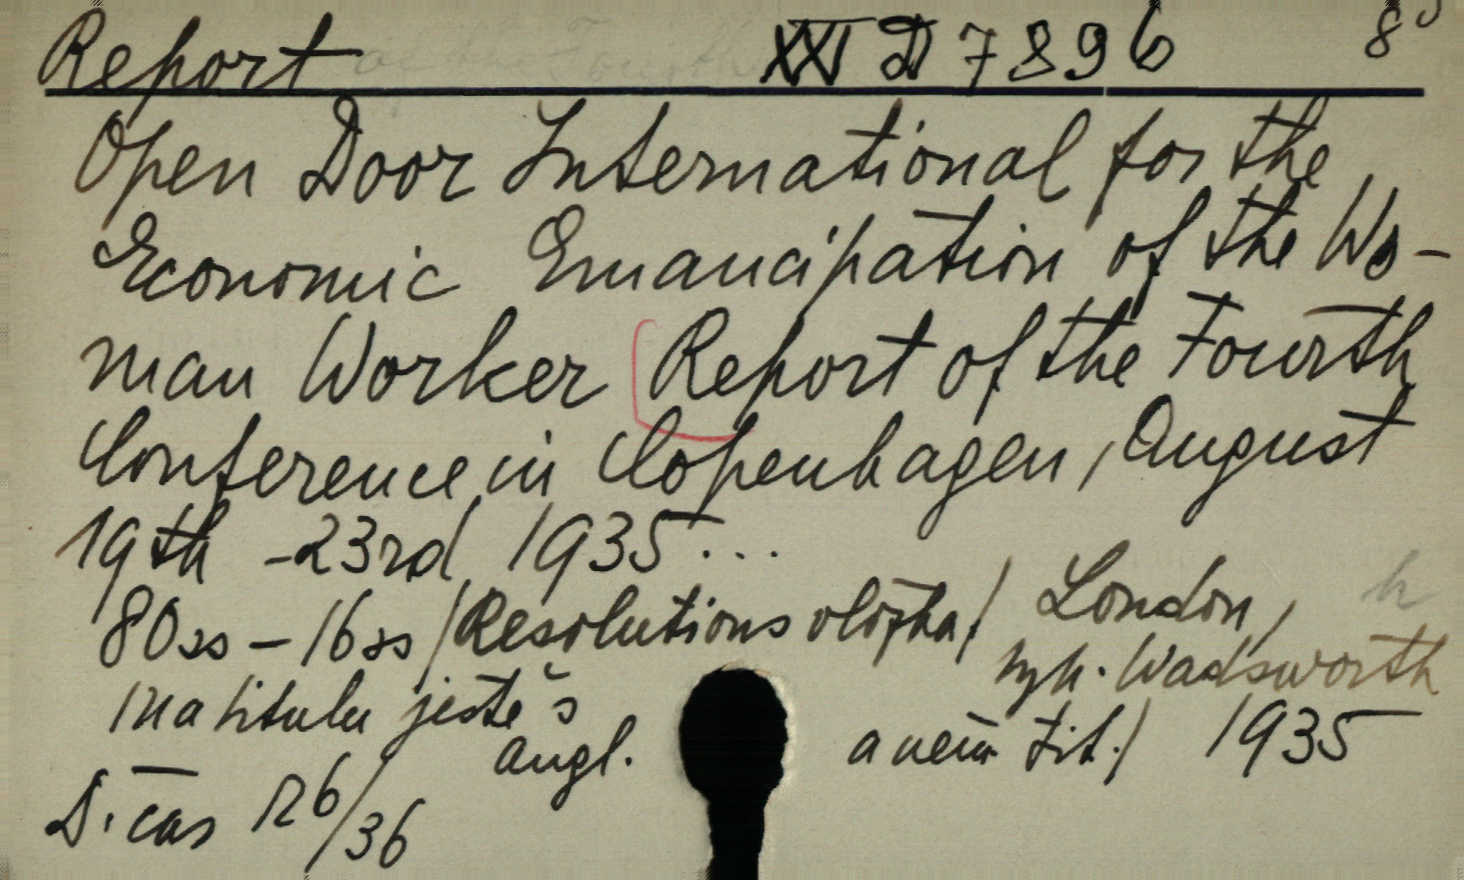 Report XXI D 7896 8°
Open Door International for the
Economic Emancipation of the Wo-
man Worker Report of the Fourth
Conference in Copenhagen, August
19th -23rd 1935...
80 ss - 16 ss /Resolutions vložka/ London,
/na titulu ještě s angl. a něm. tit./ Wadsworth 1935
D. čas 126/36